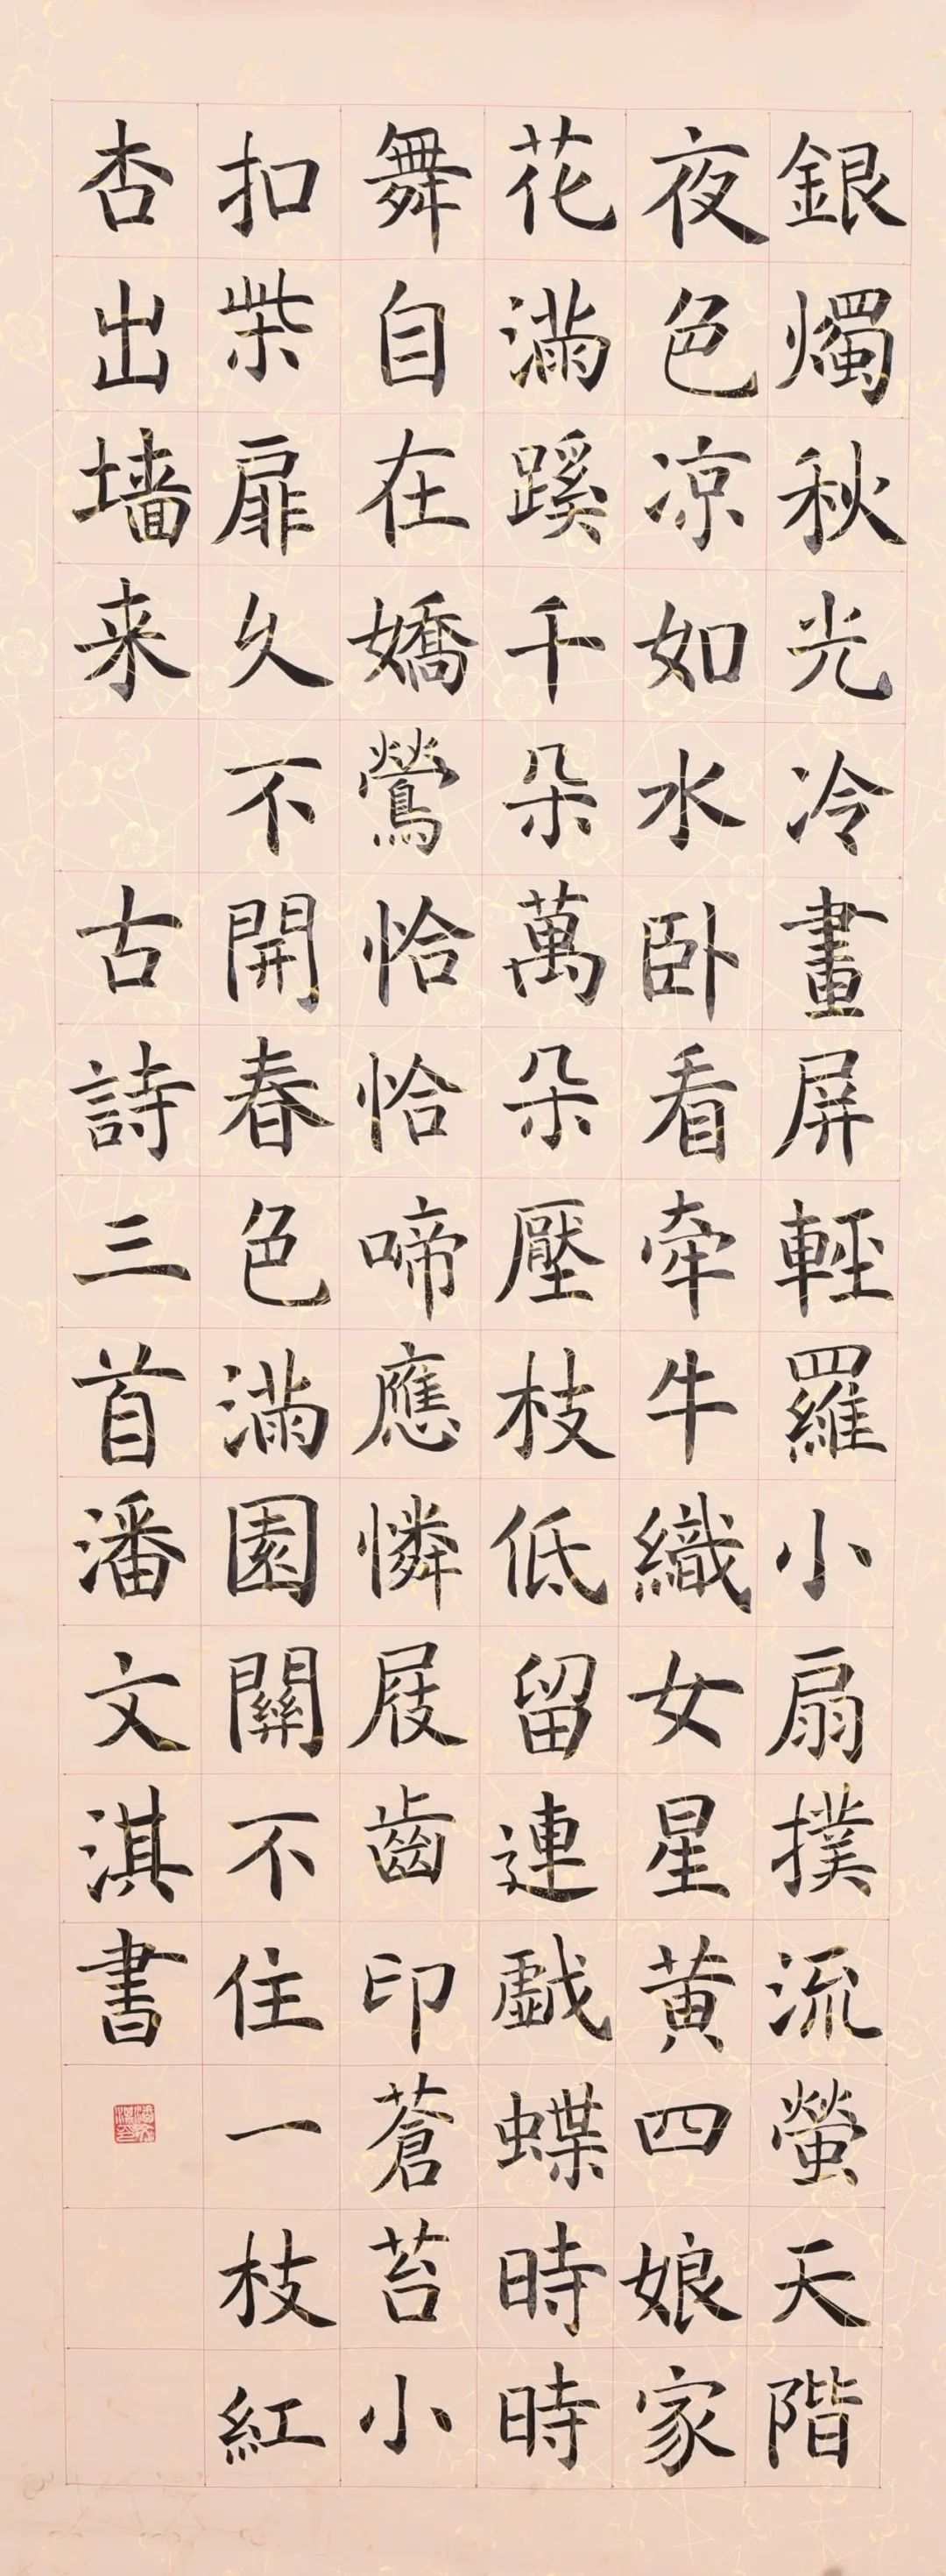 銀燭秋光冷畫屏輕羅小扇撲流螢天階
夜色凉如水卧看牽牛織女星黄四娘家
花滿蹊千朵萬朵壓枝低留連戯蝶時時
舞自在嬌鶯恰恰啼應憐屐齒印蒼苔小
扣柴扉久不開春色滿園關不住一枝紅
杏出墻来 古詩三首潘文淇書